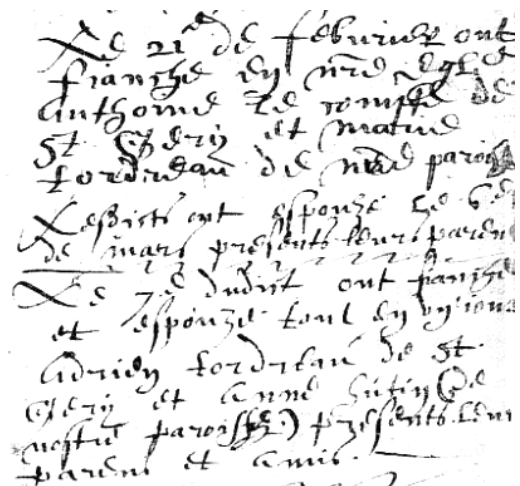 Le 21e de febvrier ont
fianche en nre Eglé
Anthoine Le comte de
St Gery et Marie
tordreau de nre paroi
Lesdicts ont esponze le 6e
de mars presents leurs paren
Le 7e dudit ont fianche
et esponze tout en ung iour
Adrien tordreau de St
Gery et Anne (de
nostre paroisse) presents leur
parens et amis.